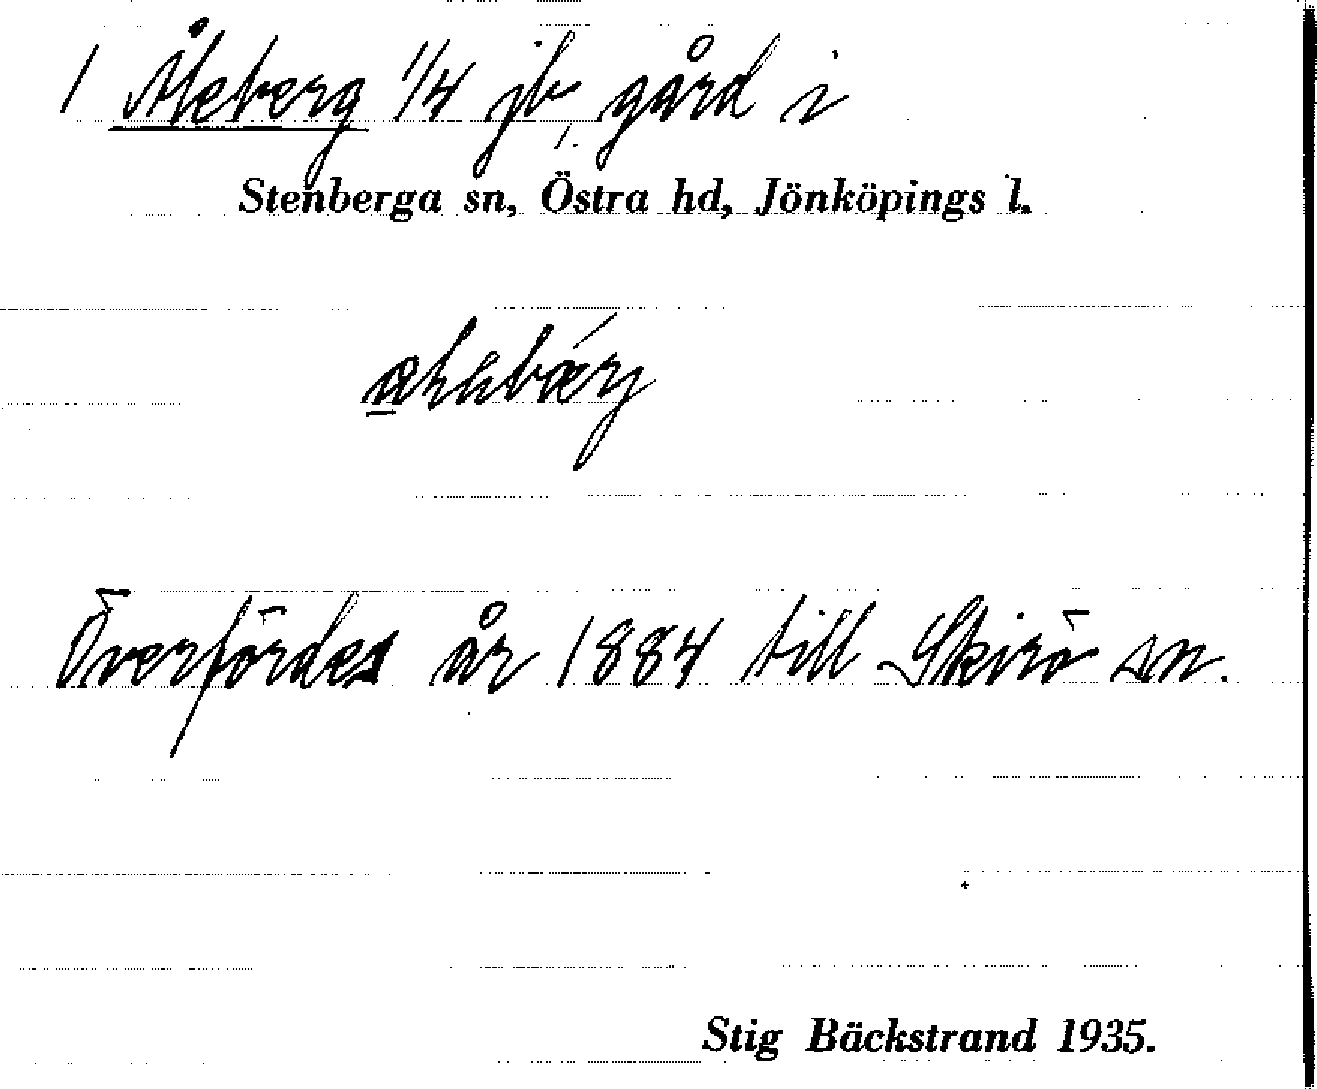 1 Åleberg 1/4 jb. gård i
Stenberga sn, Östra hd, Jönköpings l.
Överfördes år 1884 till Skirö sn.
Stig Bäckstrand 1935.